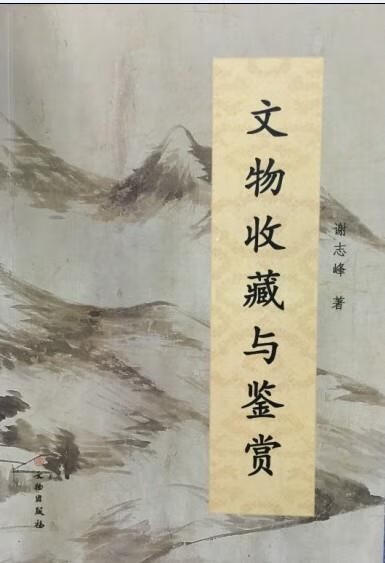 文物收藏与鉴赏
谢志峰 著
文物出版社